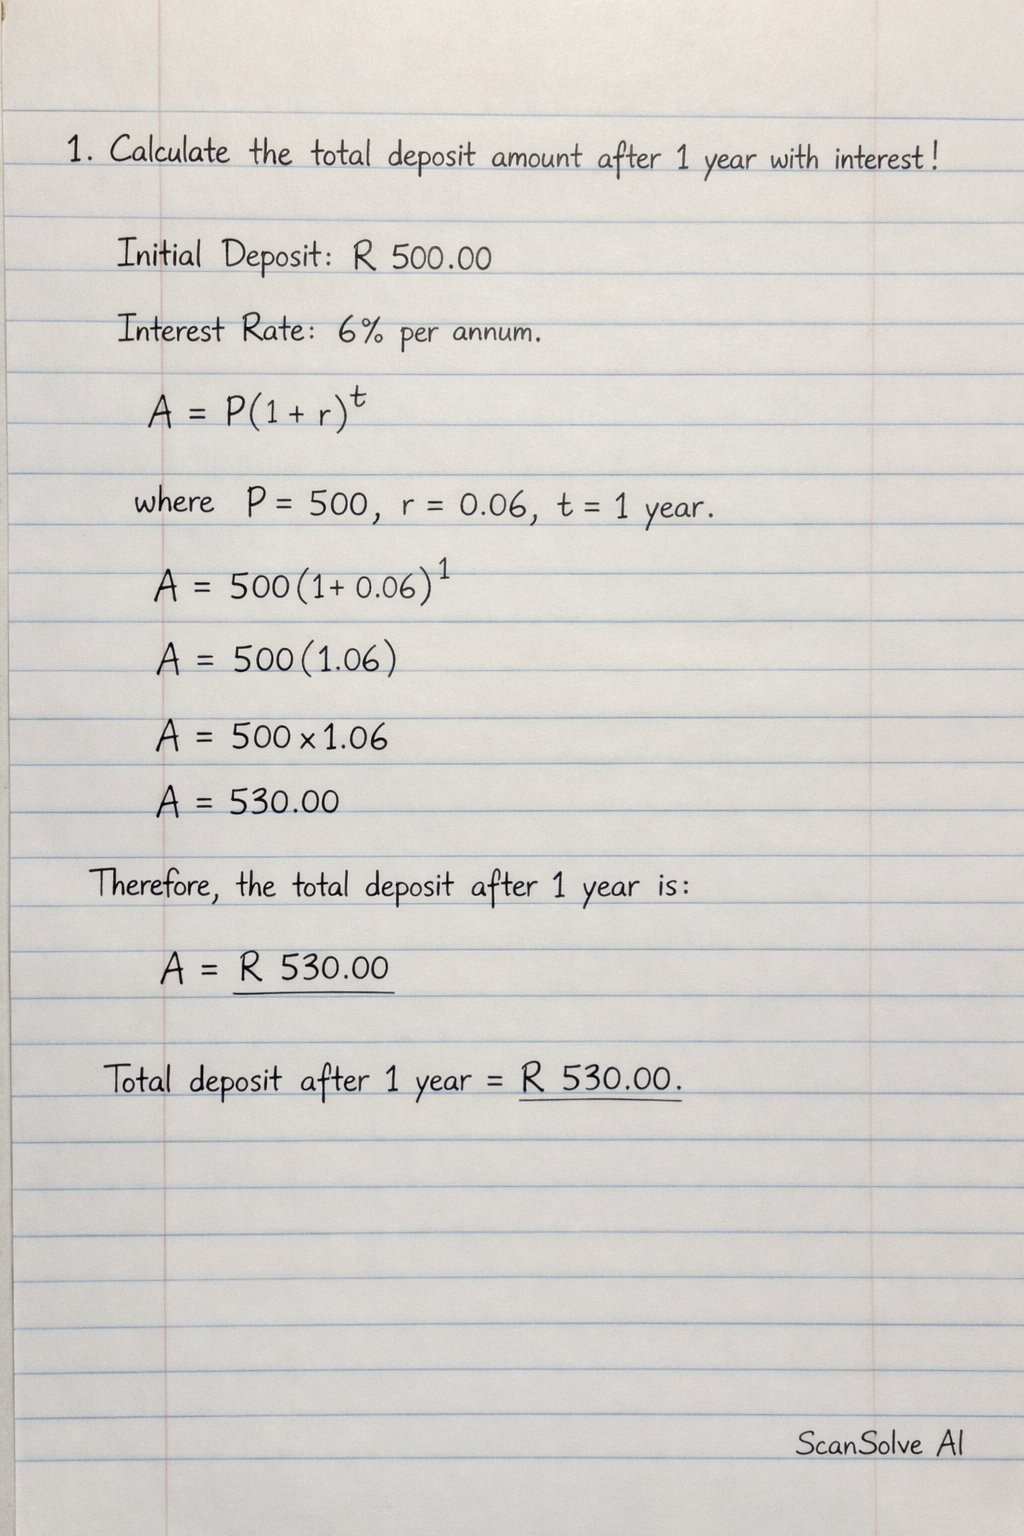 1. Calculate the total deposit amount after 1 year with interest!
Initial Deposit: R 500.00
Interest Rate: 6% per annum.
A = P(1 + r)^t
where P = 500, r = 0.06, t = 1 year.
A = 500(1+ 0.06)^1
A = 500(1.06)
A = 500 x 1.06
A = 530.00
Therefore, the total deposit after 1 year is:
A = R 530.00
Total deposit after 1 year = R 530.00.
ScanSolve AI